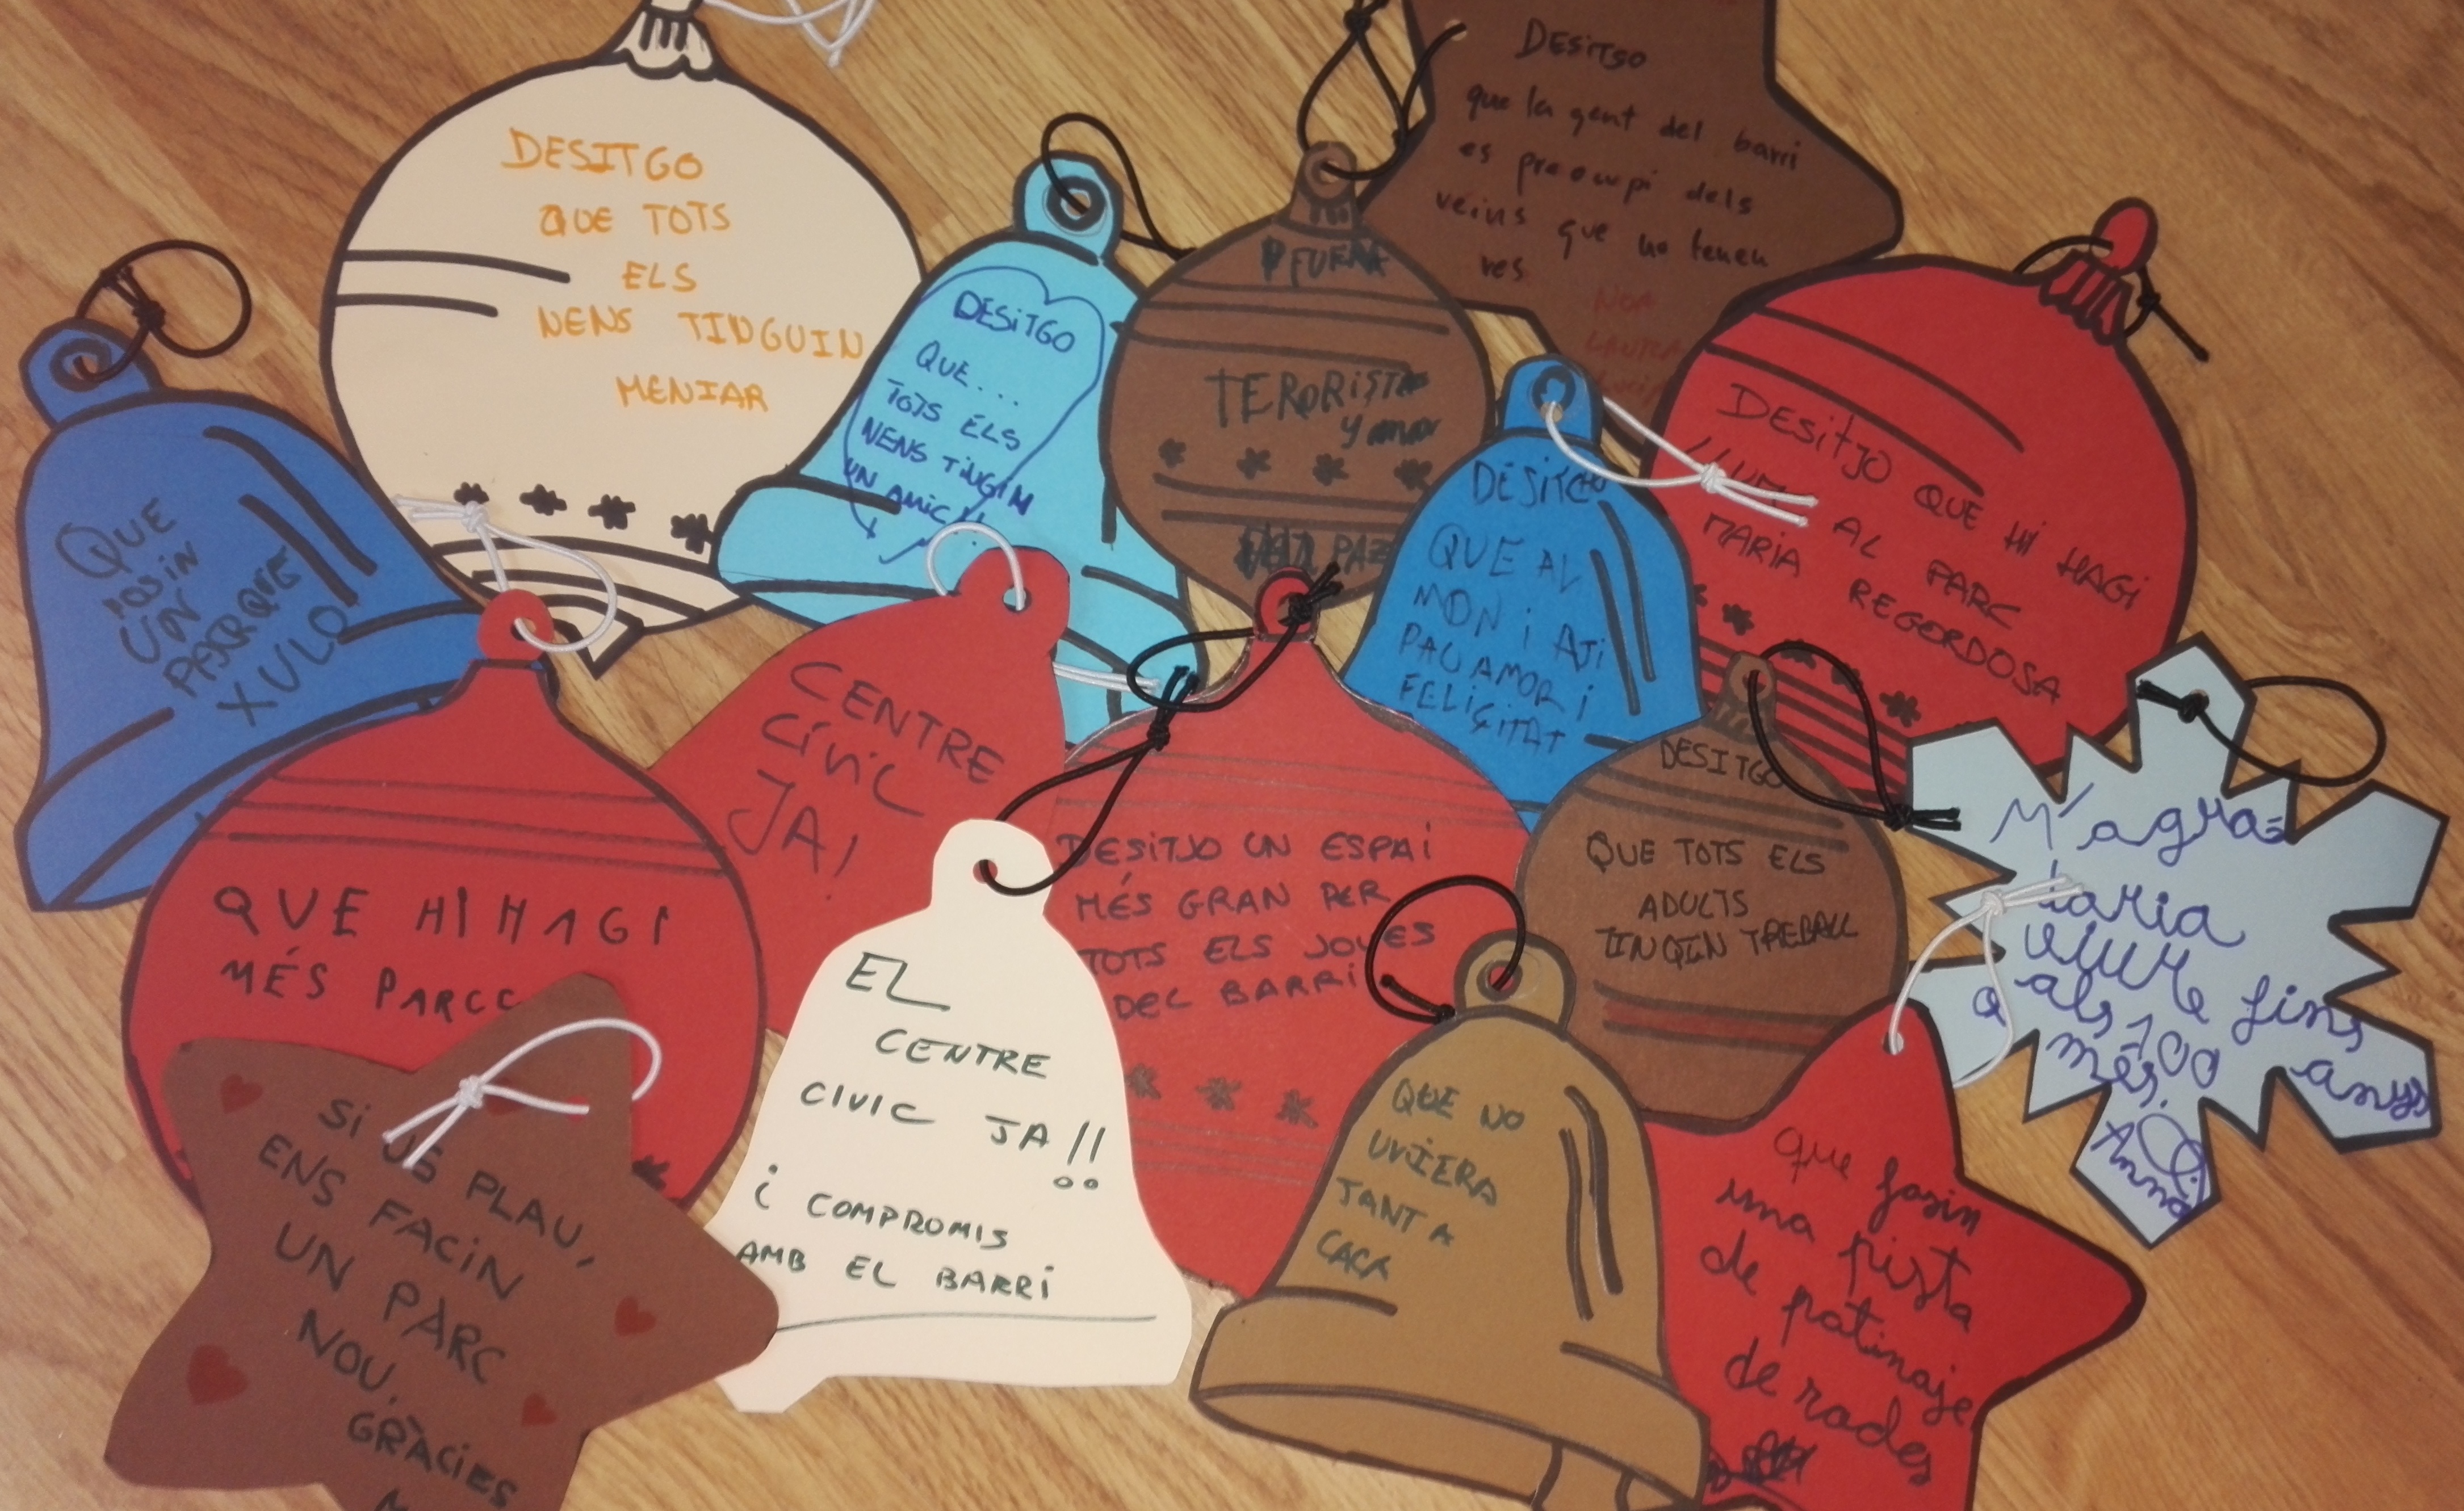 DESITGO
QUE TOTS
ELS
NENS TINGUIN
MENJAR
DESITGO
QUE...
TOTS ELS
NENS TINGIN
UN AMIC!!
FUERA
TERORISTA
y
PAZ
DESITGO
que la gent del barri
es preocupi dels
veins que no tenen
res
NOA
DESITJO QUE HI HAGI
LLUM AL PARC
MARIA REGORDOSA
QUE
POSIN
UN
PARQUE
XULO
CENTRE
CÍVIC
JA!
DESITGO
QUE AL
MON i AJI
PAU AMOR i
FELIÇITAT
DESITGO
QUE TOTS ELS
ADULTS
TINQIN TREBALL
M'agra=
daria
viure fins
als 100 anys
o més.
Anna
QUE HI HAGI
MÉS PARCS
DESITJO UN ESPAI
MÉS GRAN PER
TOTS ELS JOVES
DEL BARRI
SI US PLAU,
ENS FACIN
UN PÀRC
NOU.
GRÀCIES
EL
CENTRE
CIVIC JA!!
i COMPROMIS
AMB EL BARRI
QUE NO
UVIERA
TANTA
CACA
que fasin
una pista
de patinaje
de rodes